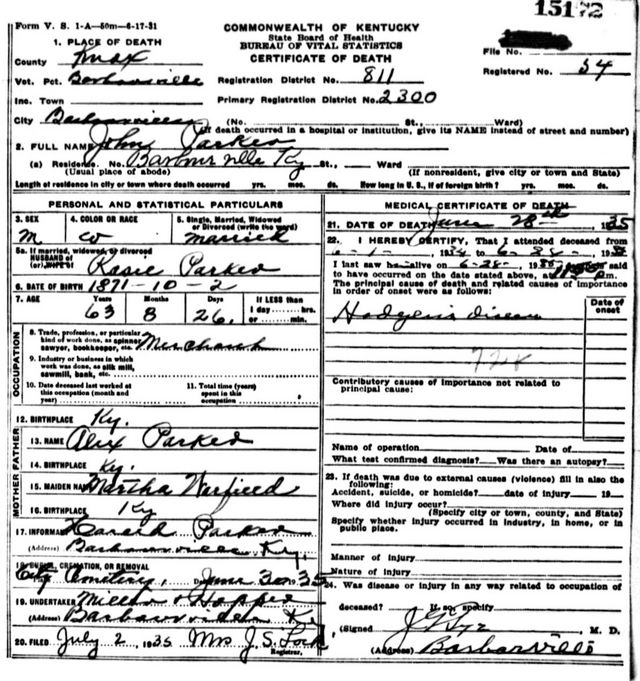 15172
Form V. S. 1-A—50m—6-17-31
COMMONWEALTH OF KENTUCKY
State Board of Health
BUREAU OF VITAL STATISTICS
CERTIFICATE OF DEATH
File No.
Registered No. 54
1. PLACE OF DEATH
County Knox
Vot. Pct. Barbourville
Registration District No. 811
Inc. Town
Primary Registration District No. 2300
City Barbourville (No. St., Ward)
(If death occurred in a hospital or institution, give its NAME instead of street and number)
2. FULL NAME John Parker
(a) Residence. No. Barbourville Ky St., Ward
(Usual place of abode) (If nonresident, give city or town and State)
Length of residence in city or town where death occurred yrs. mos. ds. How long in U. S., if of foreign birth? yrs. mos. ds.
PERSONAL AND STATISTICAL PARTICULARS
3. SEX M
4. COLOR OR RACE W
5. Single, Married, Widowed or Divorced (write the word) married
5a. If married, widowed, or divorced
HUSBAND of
(or) WIFE of Parker
6. DATE OF BIRTH 1871-10-2
7. AGE Years Months Days If LESS than
63 8 26 1 day hrs.
or min.
OCCUPATION
8. Trade, profession, or particular
kind of work done, as spinner,
sawyer, bookkeeper, etc. Merchant
9. Industry or business in which
work was done, as silk mill,
sawmill, bank, etc.
10. Date deceased last worked at
this occupation (month and
year)
11. Total time (years)
spent in this
occupation
12. BIRTHPLACE Ky.
FATHER
13. NAME Alex Parker
14. BIRTHPLACE Ky.
MOTHER
15. MAIDEN NAME Martha Warfield
16. BIRTHPLACE Ky
17. INFORMANT Parker
(Address) Barbourville Ky.
18. BURIAL, CREMATION, OR REMOVAL
City Cemetery, Date June 30 35
19. UNDERTAKER Miller & Hopper
(Address) Barbourville Ky
20. FILED July 2, 1935 Mrs J. S. Lock
Registrar.
MEDICAL CERTIFICATE OF DEATH
21. DATE OF DEATH June 28th 1935
22. I HEREBY CERTIFY, That I attended deceased from
1934 to 6-28- 19
I last saw h alive on 6-28- 1935 said
to have occurred on the date stated above, m.
The principal cause of death and related causes of importance
in order of onset were as follows:
Date of
onset
Hodgkins disease
72B
Contributory causes of importance not related to
principal cause:
Name of operation Date of
What test confirmed diagnosis? Was there an autopsy?
23. If death was due to external causes (violence) fill in also the
following:
Accident, suicide, or homicide? date of injury 19
Where did injury occur?
(Specify city or town, county, and State)
Specify whether injury occurred in industry, in home, or in
public place.
Manner of injury
Nature of injury
24. Was disease or injury in any way related to occupation of
deceased? If so, specify
(Signed M. D.
(Address) Barbourville